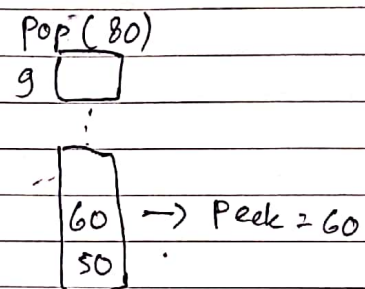 Pop (80)
9
60 → Peek = 60
50